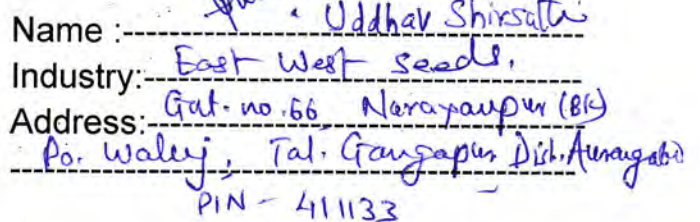 Name :- Uddhav Shirsath
Industry:- East West Seeds.
Address:- Gat. no. 66 Narayanpur (BK)
Po. Waluj, Tal. Gangapur Dist. Aurangabad
PIN - 411133